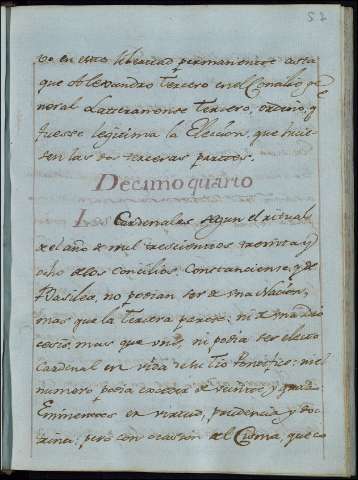 57
vo en esta libertad permanente asta
que Alexandro Tercero en el Concilio Ge
neral Lateranense Tercero, ordeno, q
fuesse legitima la Eleccion, que hicie
sen las dos terceras partes.
Decimo quarto
Los Cardenales segun el ritual
de el año de mil trescientos treinta y
ocho de los Concilios, Constanciense, y de
Basilea, no podian ser de una Nacion,
mas que la Tercera parte: ni de
mas que uno, ni podia ser electo
Cardenal en vida de su Tio Pontifice: ni el
numero podia exceder de veinte y quatro
Eminentes en virtud, prudencia y doc
trina: pero con ocasion del Cisma, que co